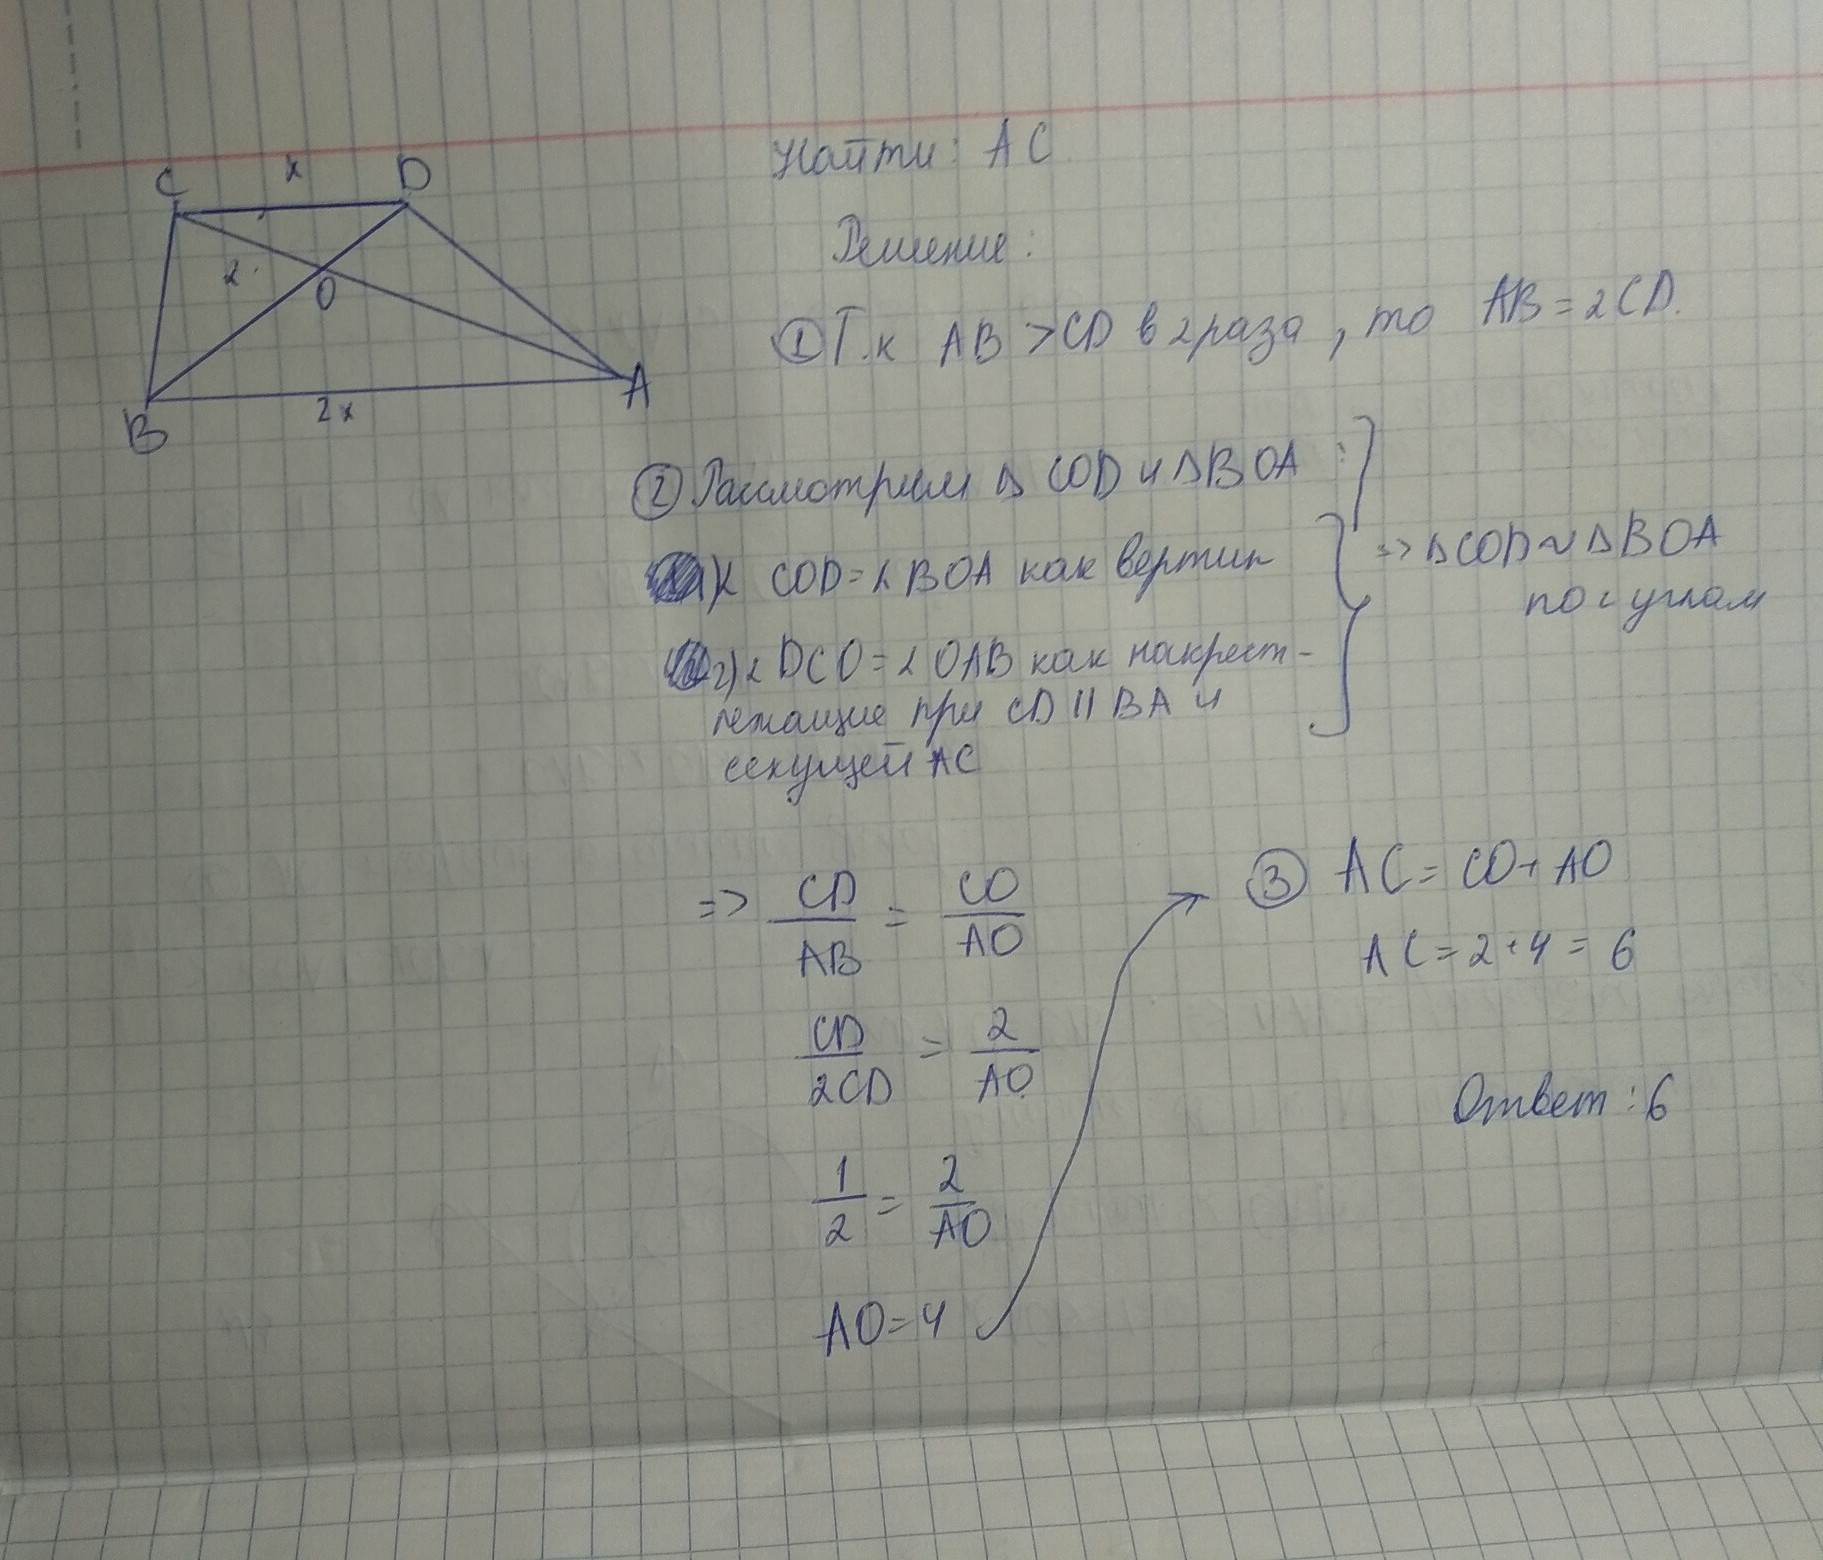 C
x
D
2
O
B
2x
A
Найти: AC
Решение:
① Т.к AB > CD в 2 раза, то AB = 2CD.
② Рассмотрим Δ COD и Δ BOA :
1) ∠ COD = ∠ BOA как вертик
2) ∠ DCO = ∠ OAB как накрест-
лежащие при CD || BA и
секущей AC
=> Δ COD ~ Δ BOA
по 2 углам
=> CD/AB = CO/AO
CD/2CD = 2/AO
1/2 = 2/AO
AO = 4
③ AC = CO + AO
AC = 2 + 4 = 6
Ответ: 6